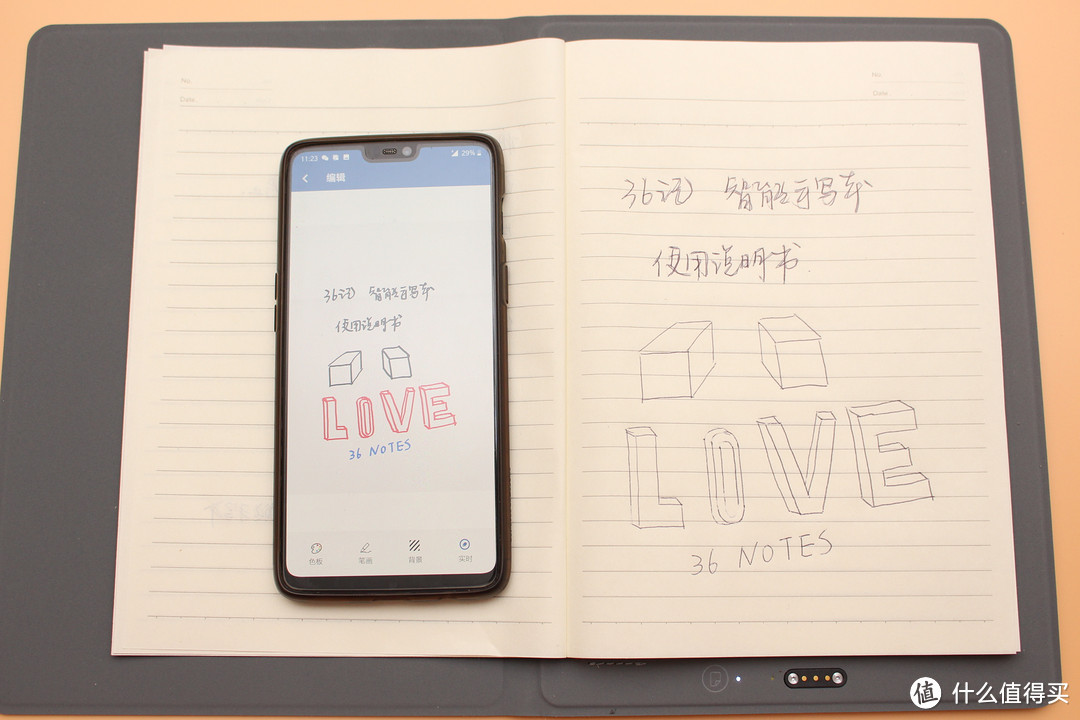 No.
Date.
11:23
29%
编辑
36记 智能手写本
使用说明书
LOVE
36 NOTES
色板
笔画
背景
实时
No.
Date.
36记 智能手写本
使用说明书
LOVE
36 NOTES
值 什么值得买